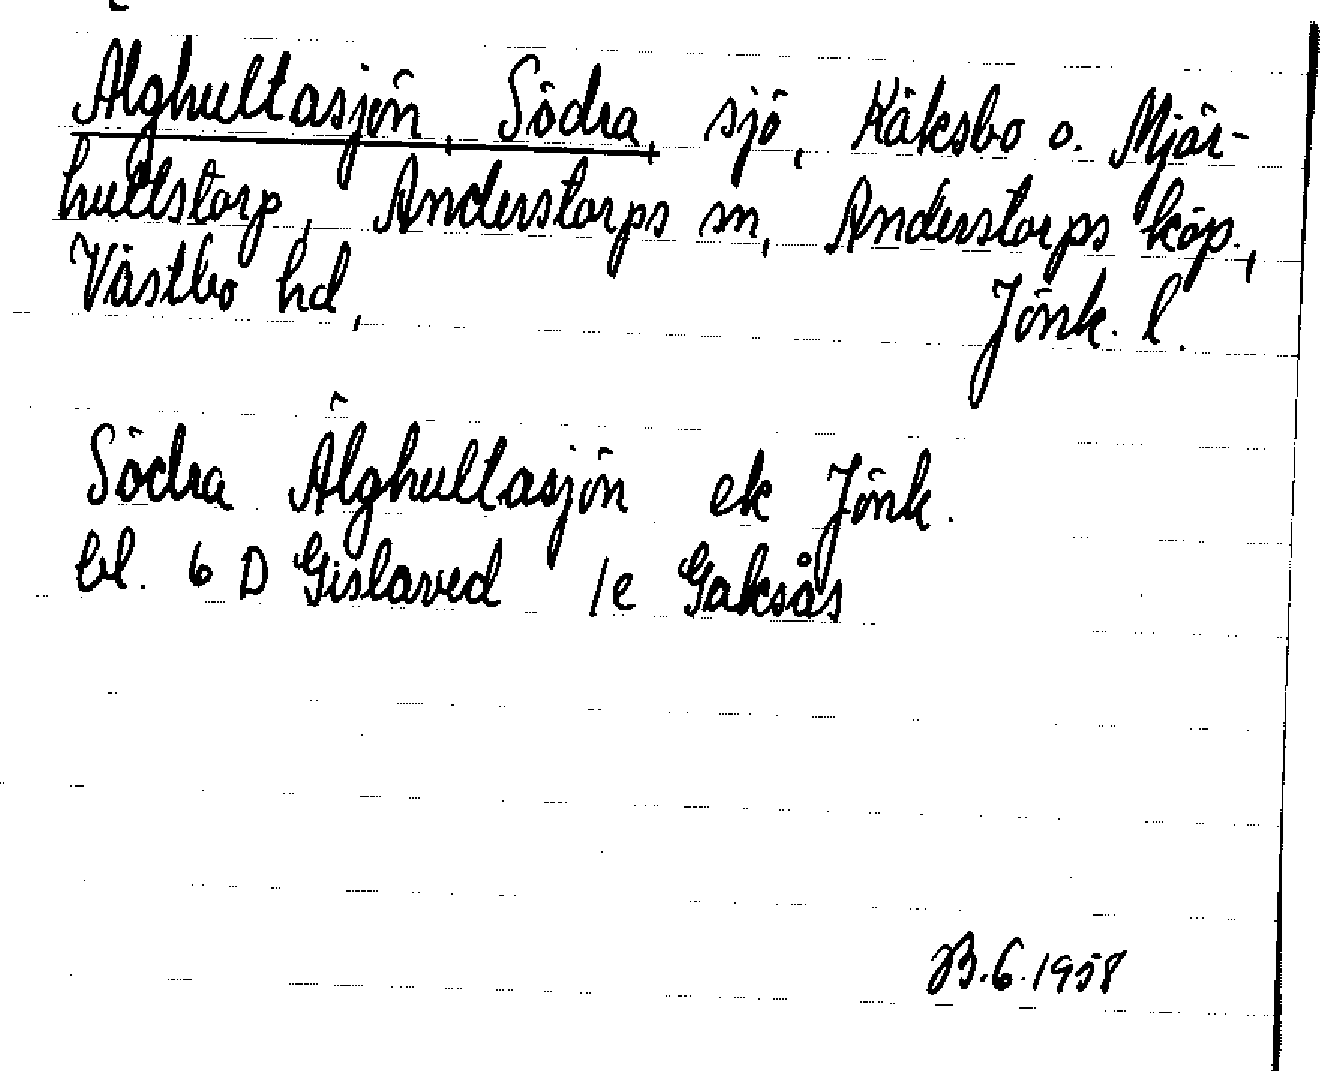 Älghultasjön, Södra, sjö, Käksbo o. Mjär-
hultstorp, Anderstorps sn, Anderstorps köp.,
Västbo hd, Jönk. l.
Södra Älghultasjön ek Jönk.
bl. 6 D Gislaved 1e Gaksås
B.6.1958